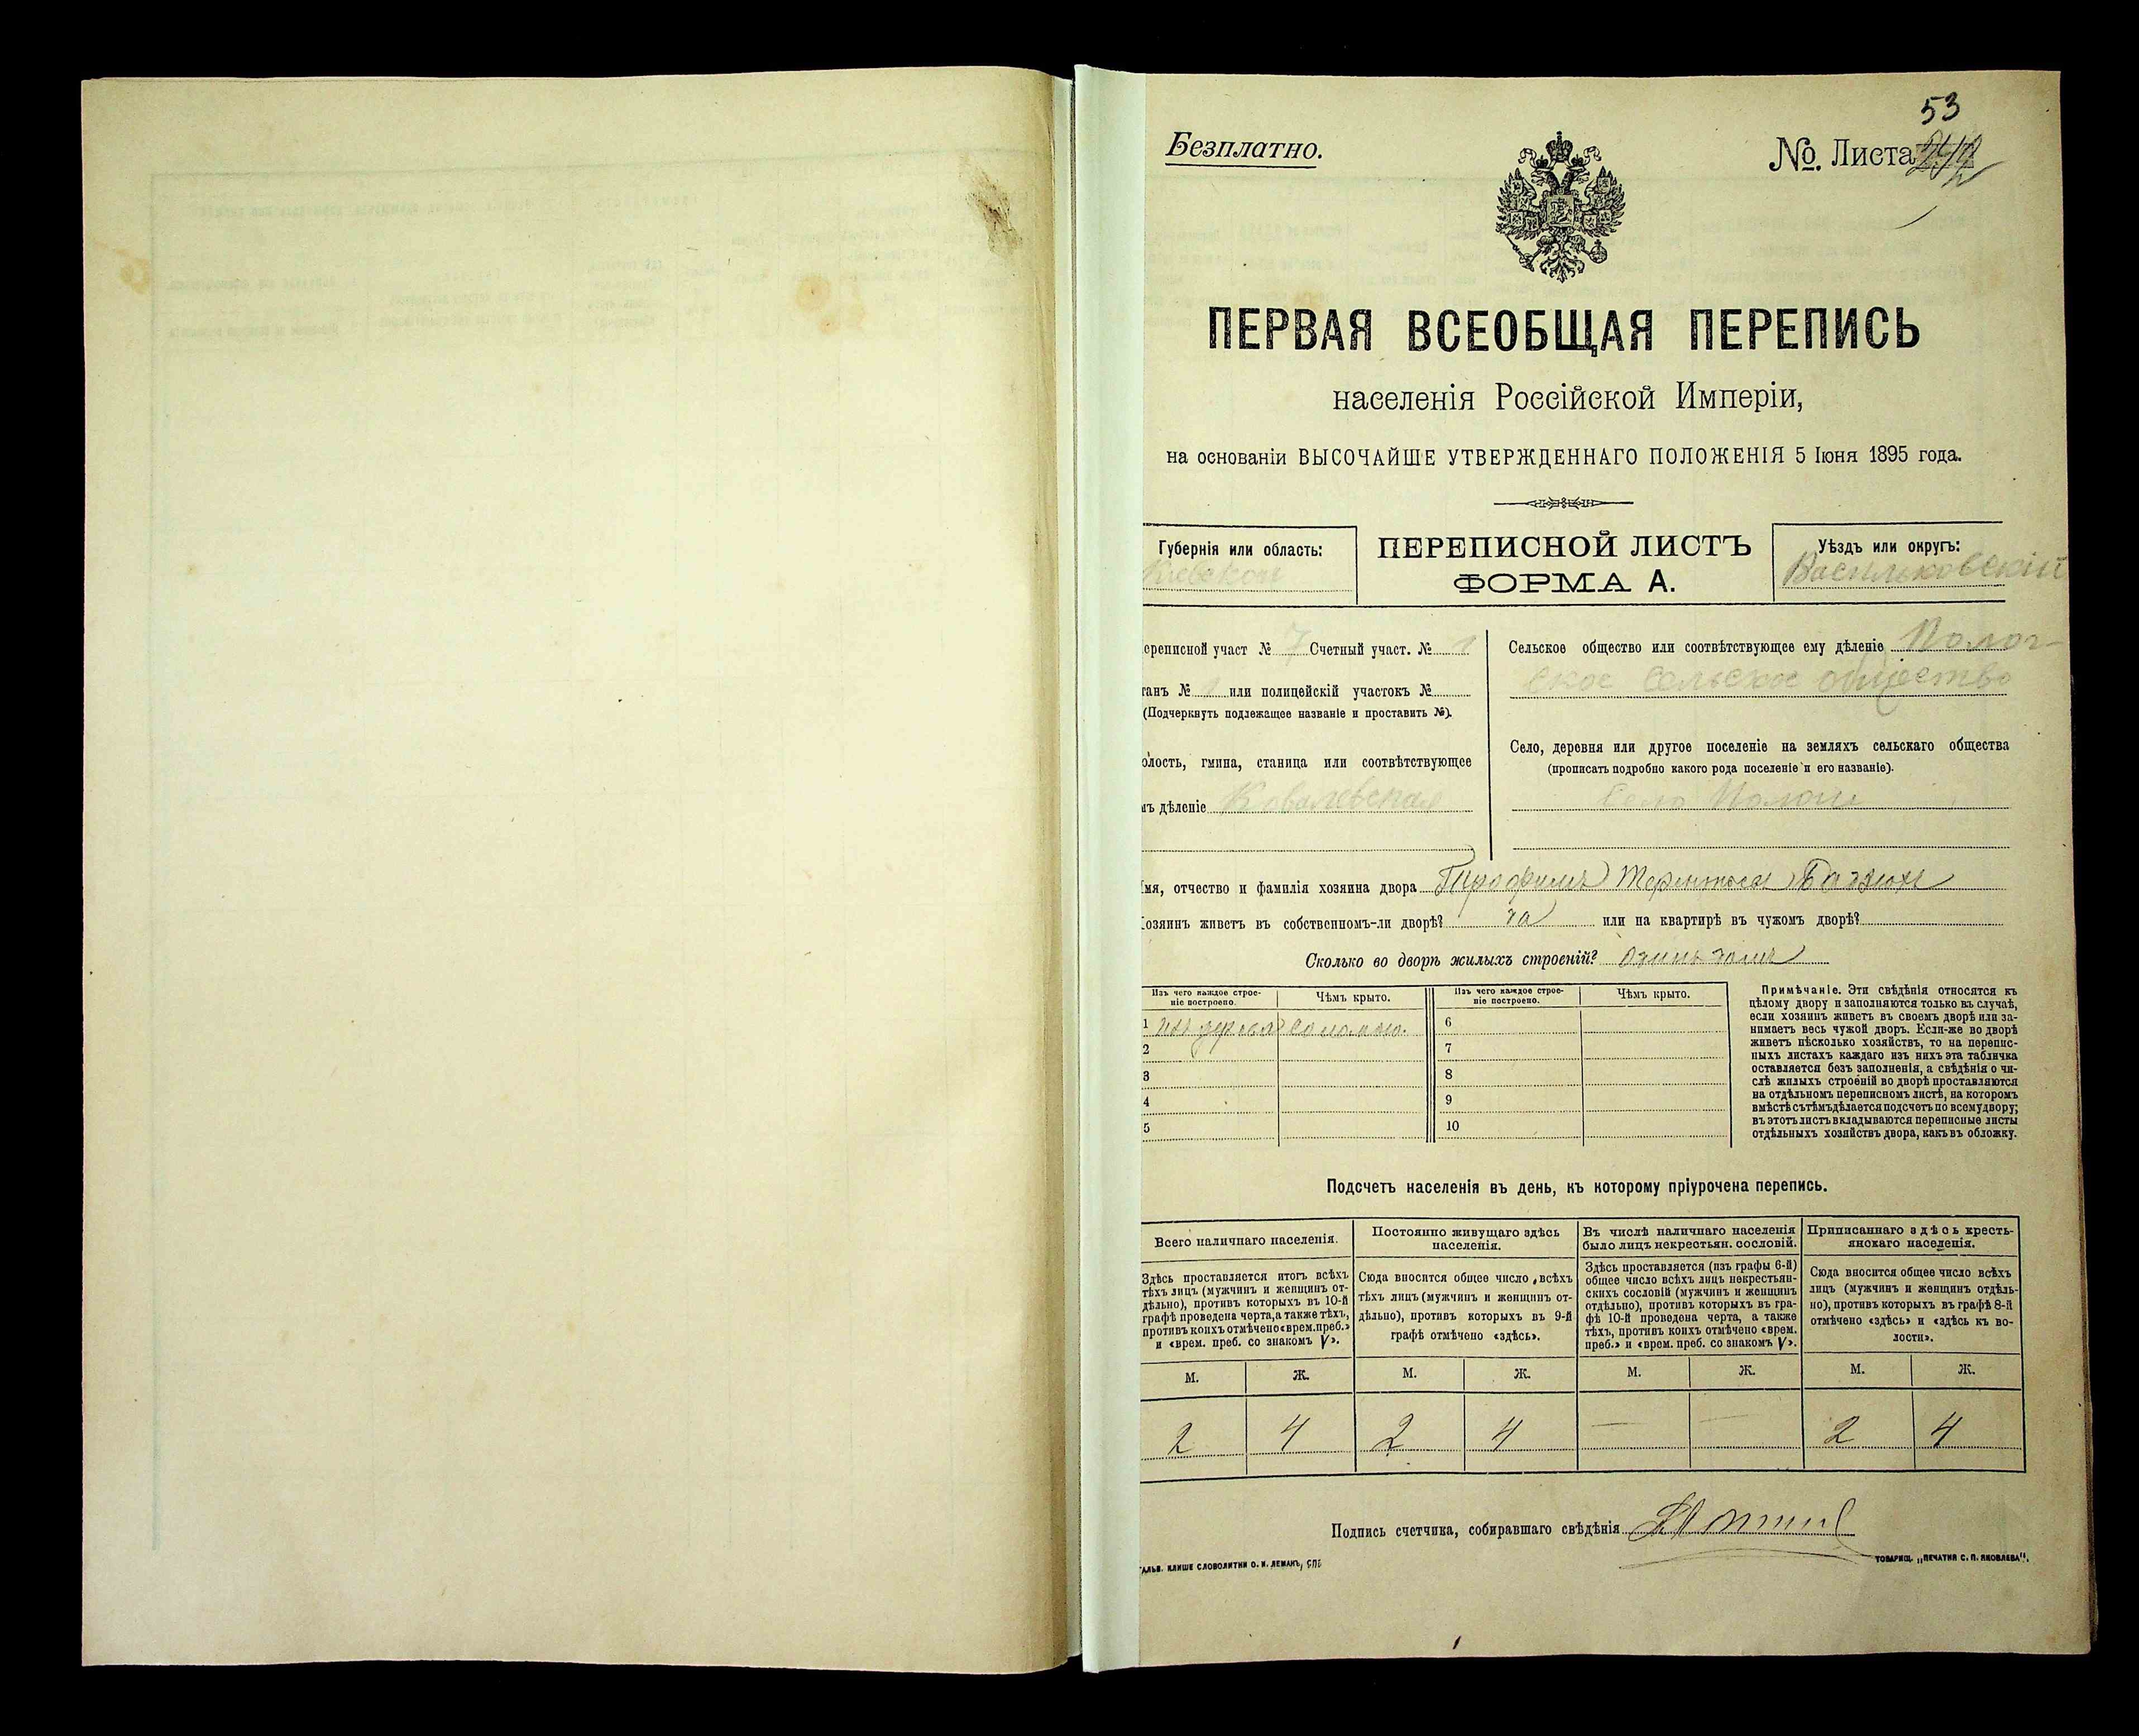 53
Безплатно.
№. Листа
ПЕРВАЯ ВСЕОБЩАЯ ПЕРЕПИСЬ
населенія Россійской Имперіи,
на основаніи ВЫСОЧАЙШЕ УТВЕРЖДЕННАГО ПОЛОЖЕНІЯ 5 Іюня 1895 года.
Губернія или область:
Кіевской
ПЕРЕПИСНОЙ ЛИСТЪ
ФОРМА А.
Уѣздъ или округъ:
Васильковскій
ереписной участ № 7 Счетный участ. № 1
танъ № 1 или полицейскій участокъ №
(Подчеркнуть подлежащее названіе и проставить №).
олость, гмина, станица или соотвѣтствующее
мъ дѣленіе Ковалевская
Сельское общество или соотвѣтствующее ему дѣленіе Полог-
ское сельское общество
Село, деревня или другое поселеніе на земляхъ сельскаго общества
(прописать подробно какого рода поселеніе и его названіе).
Село Пологи
мя, отчество и фамилія хозяина двора Трофимъ
озяинъ живетъ въ собственномъ-ли дворѣ? да или на квартирѣ въ чужомъ дворѣ?
Сколько во дворѣ жилыхъ строеній? Одинъ домъ
Изъ чего каждое строе-
ніе построено.
Чѣмъ крыто.
Изъ чего каждое строе-
ніе построено.
Чѣмъ крыто.
1 изъ дерева соломою.
2
3
4
5
6
7
8
9
10
Примѣчаніе. Эти свѣдѣнія относятся къ
цѣлому двору и заполняются только въ случаѣ,
если хозяинъ живетъ въ своемъ дворѣ или за-
нимаетъ весь чужой дворъ. Если-же во дворѣ
живетъ нѣсколько хозяйствъ, то на перепис-
ныхъ листахъ каждаго изъ нихъ эта табличка
оставляется безъ заполненія, а свѣдѣнія о чи-
слѣ жилыхъ строеній во дворѣ проставляются
на отдѣльномъ переписномъ листѣ, на которомъ
вмѣстѣ съ тѣмъ дѣлается подсчетъ по всему двору;
въ этотъ листъ вкладываются переписные листы
отдѣльныхъ хозяйствъ двора, какъ въ обложку.
Подсчетъ населенія въ день, къ которому пріурочена перепись.
Всего наличнаго населенія.
Постоянно живущаго здѣсь
населенія.
Въ числѣ наличнаго населенія
было лицъ некрестьян. сословій.
Приписаннаго здѣсь кресть-
янскаго населенія.
Здѣсь проставляется итогъ всѣхъ
тѣхъ лицъ (мужчинъ и женщинъ от-
дѣльно), противъ которыхъ въ 10-й
графѣ проведена черта, а также тѣхъ,
противъ коихъ отмѣчено «врем. преб.»
и «врем. преб. со знакомъ V».
Сюда вносится общее число всѣхъ
тѣхъ лицъ (мужчинъ и женщинъ от-
дѣльно), противъ которыхъ въ 9-й
графѣ отмѣчено «здѣсь».
Здѣсь проставляется (изъ графы 6-й)
общее число всѣхъ лицъ некрестьян-
скихъ сословій (мужчинъ и женщинъ
отдѣльно), противъ которыхъ въ гра-
фѣ 10-й проведена черта, а также
тѣхъ, противъ коихъ отмѣчено «врем.
преб.» и «врем. преб. со знакомъ V».
Сюда вносится общее число всѣхъ
лицъ (мужчинъ и женщинъ отдѣль-
но), противъ которыхъ въ графѣ 8-й
отмѣчено «здѣсь» и «здѣсь къ во-
лости».
М. Ж. М. Ж. М. Ж. М. Ж.
2 4 2 4 — — 2 4
Подпись счетчика, собиравшаго свѣдѣнія
ГАЛЬВ. КЛИШЕ СЛОВОЛИТНИ О. И. ЛЕМАНЪ, СПБ
ТОВАРИЩ. „ПЕЧАТНЯ С. П. ЯКОВЛЕВА".